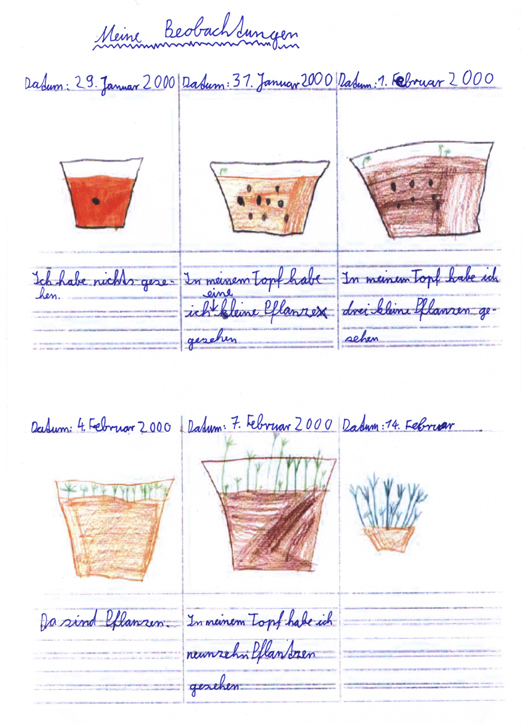 Meine Beobachtungen
Datum: 29. Januar 2000
Ich habe nichts gese-
hen.
Datum: 31. Januar 2000
In meinem Topf habe
eine
ich kleine Pflanze
gesehen
Datum: 1. Februar 2000
In meinem Topf habe ich
drei kleine Pflanzen ge-
sehen
Datum: 4. Februar 2000
Da sind Pflanzen.
Datum: 7. Februar 2000
In meinem Topf habe ich
neunzehn Pflantzen
gesehen
Datum: 14. Februar